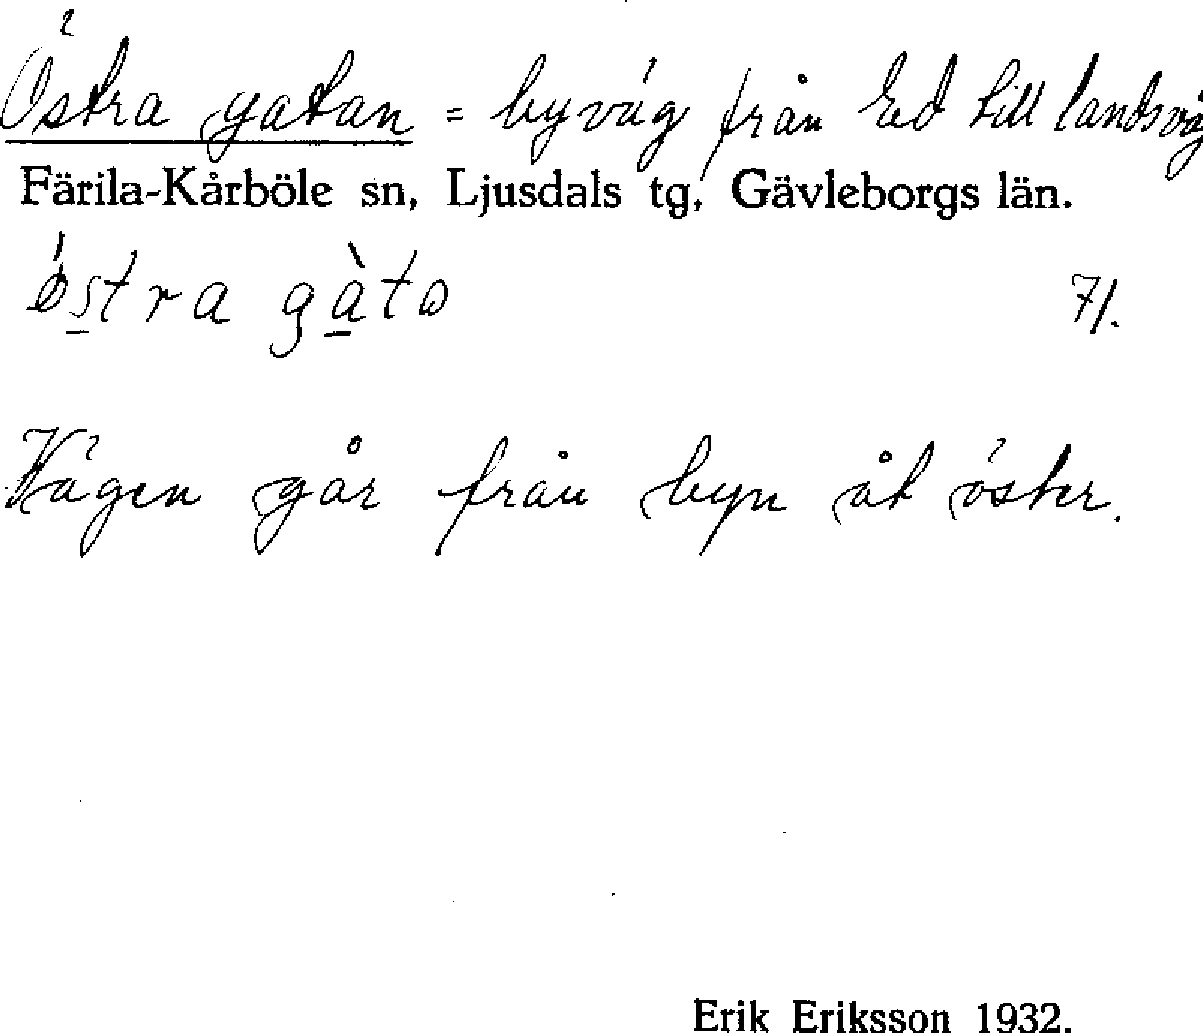 Östra gatan = byväg från Ed till landsväg
Färila-Kårböle sn, Ljusdals tg, Gävleborgs län.
östra gàta 71.
Vägen går från byn åt öster.
Erik Eriksson 1932.